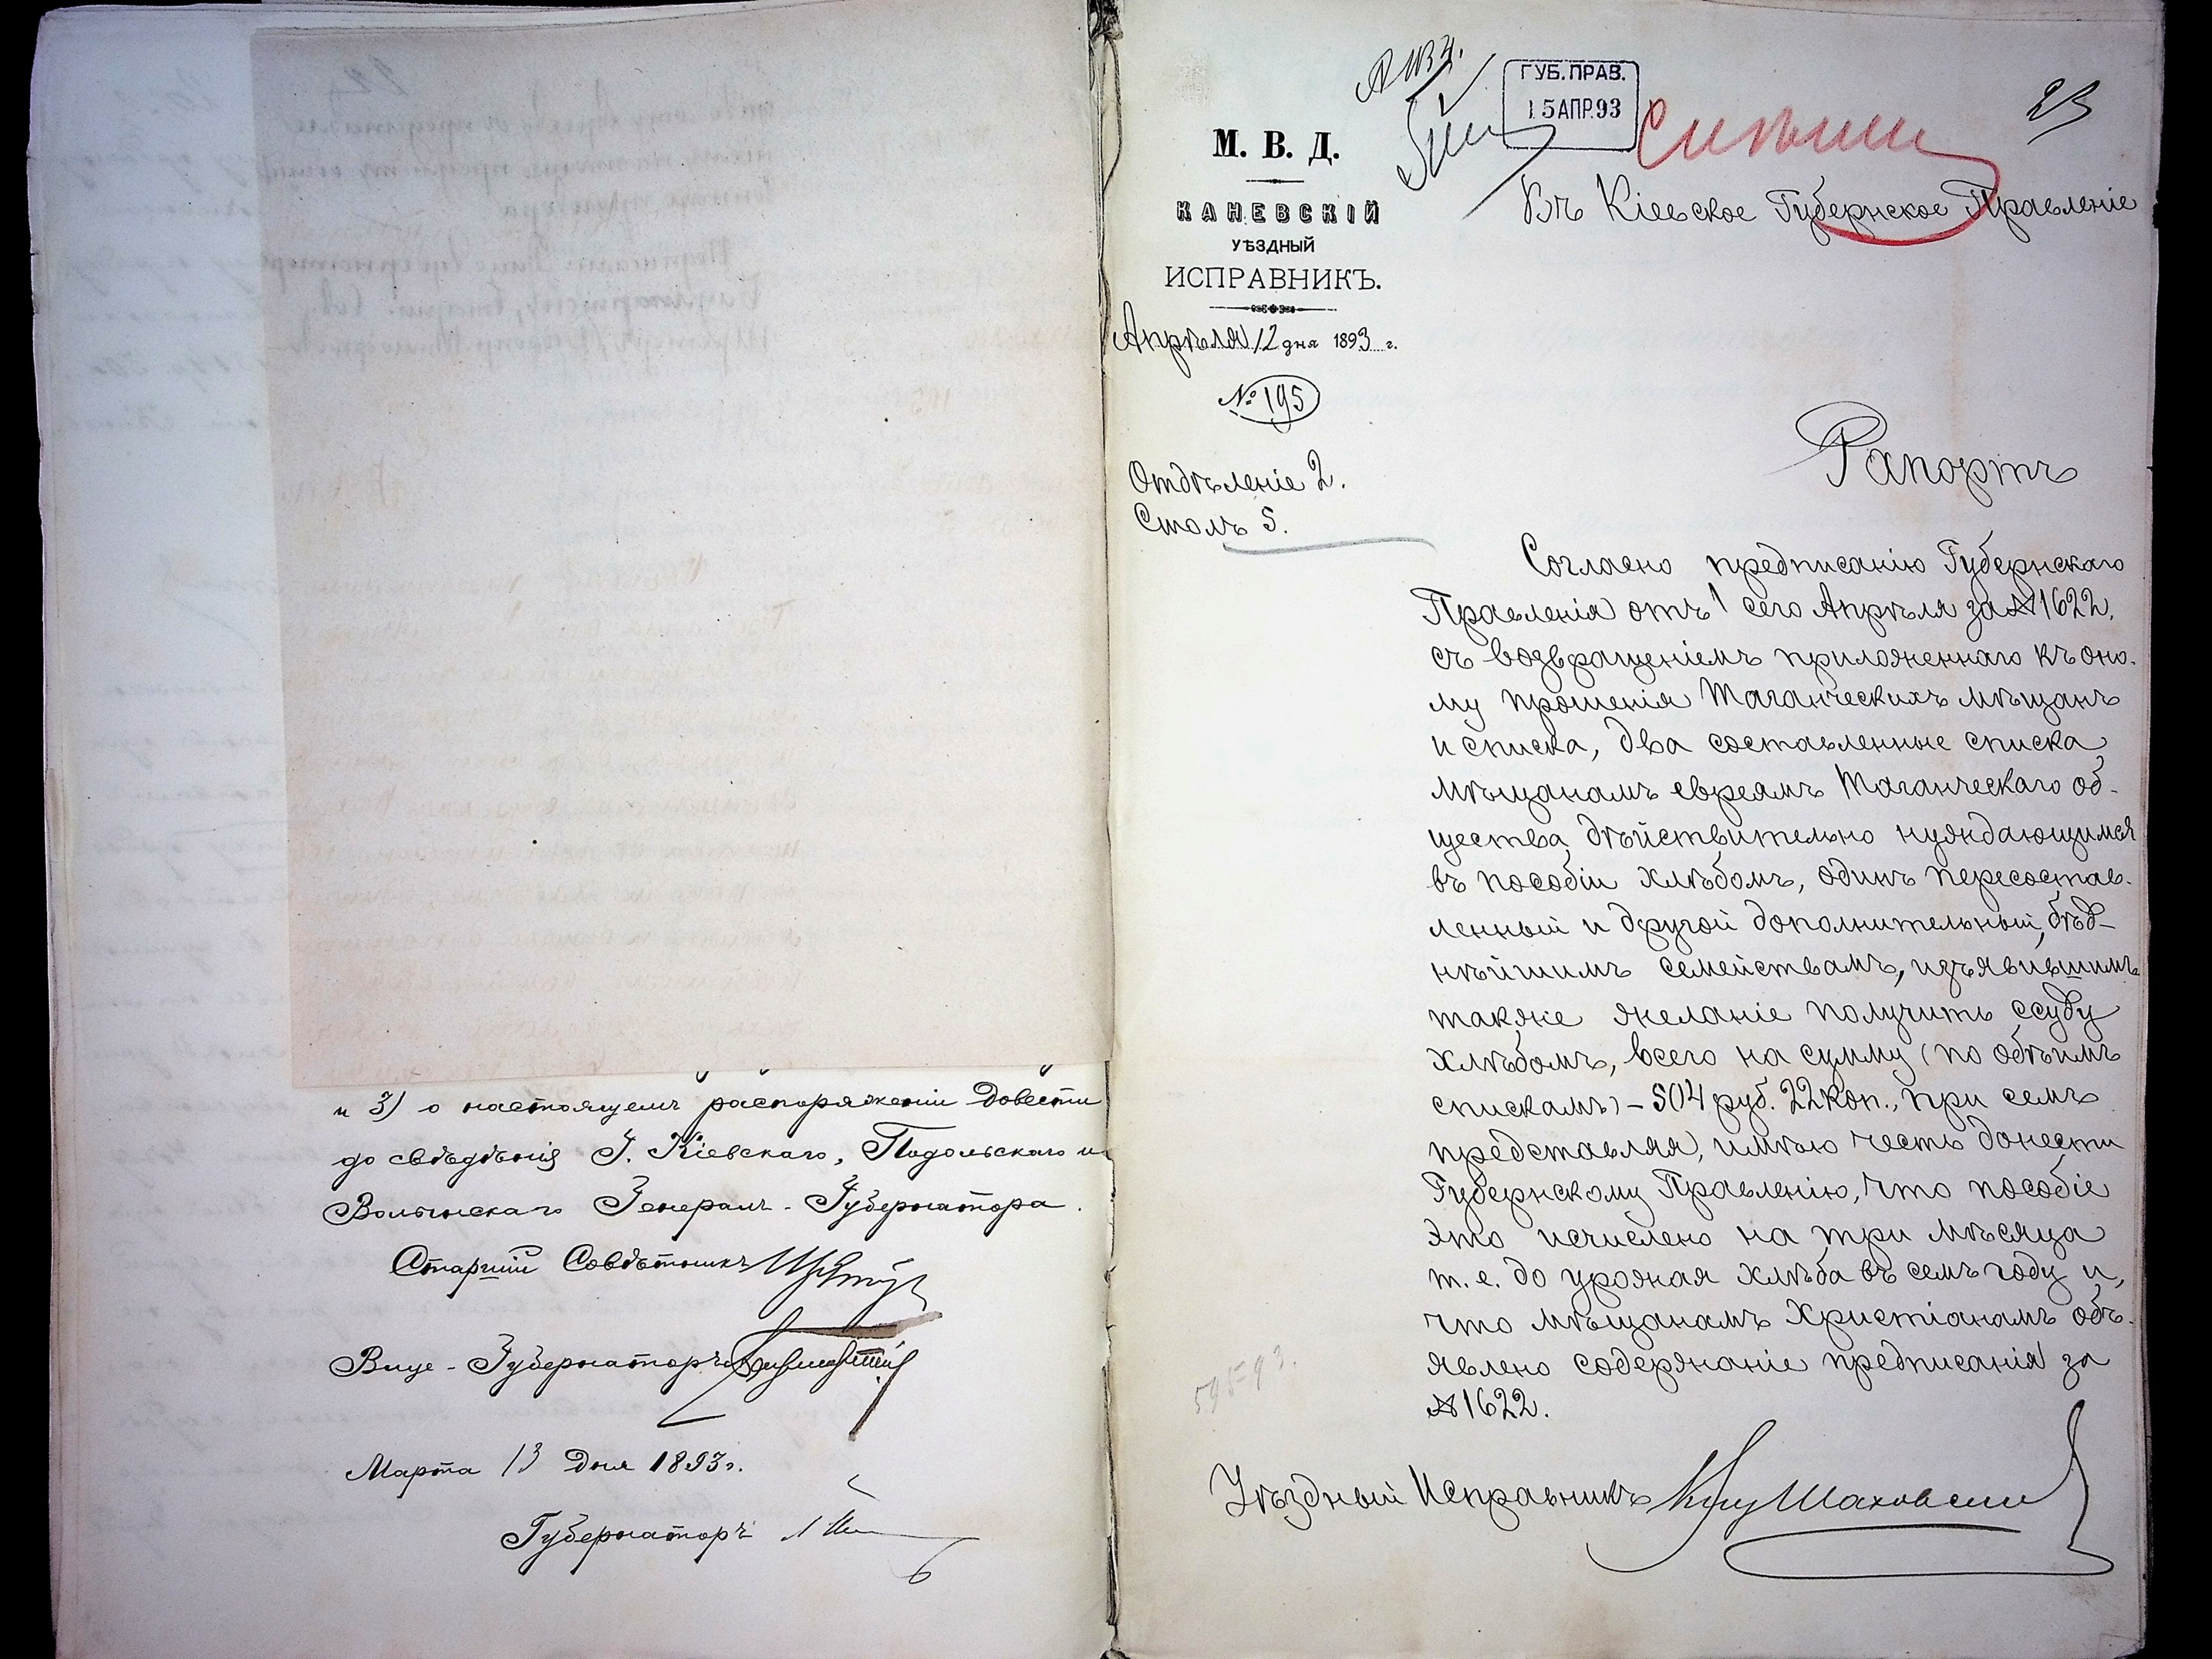 и 3) о настоящемъ распоряженіи довести
до свѣдѣнія Г. Кіевскаго, Подольскаго и
Волынскаго Генералъ-Губернатора.
Старшій Совѣтникъ
Вице-Губернаторъ
Марта 13 дня 1893 г.
Губернаторъ
ГУБ. ПРАВ.
15 АПР. 93
23
М. В. Д.
КАНЕВСКІЙ
УѢЗДНЫЙ
ИСПРАВНИКЪ.
Апрѣля 12 дня 1893 г.
№ 195
Отдѣленіе 2.
Столъ 5.
Въ Кіевское Губернское Правленіе
Рапортъ
Согласно предписанію Губернскаго
Правленія отъ 1 сего Апрѣля за № 1622.
съ возвращеніемъ приложеннаго къ оно-
му прошенія Таганческихъ мѣщанъ
и списка, два составленные списка
мѣщанамъ евреямъ Таганческаго об-
щества, дѣйствительно нуждающимся
въ пособіи хлѣбомъ, одинъ пересостав-
ленный и другой дополнительный, бѣд-
нѣйшимъ семействамъ, изъявившимъ
также желаніе получить ссуду
хлѣбомъ, всего на сумму (по обѣимъ
спискамъ) – 504 руб. 22 коп., при семъ
представляя, имѣю честь донести
Губернскому Правленію, что пособіе
это исчислено на три мѣсяца
т. е. до урожая хлѣба въ семъ году и,
что мѣщанамъ Христіанамъ объ-
явлено содержаніе предписанія за
№ 1622.
595-93.
Уѣздный Исправникъ Кн. Шаховской